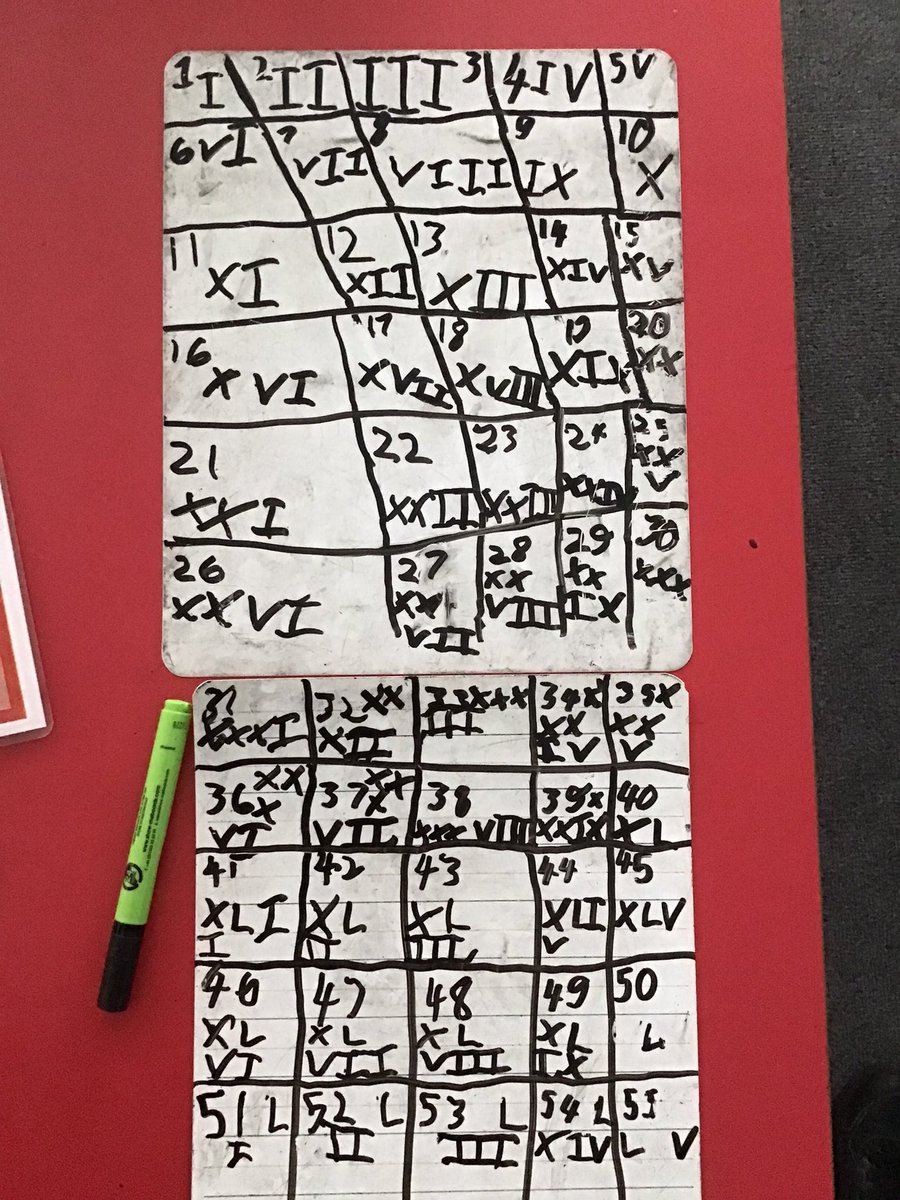 1 I 2 II III 3 4 IV 5 V
6 VI 7 VII 8 VIII 9 IX 10 X
11 XI 12 XII 13 XIII 14 XIV 15 XV
16 XVI 17 XVII 18 XVIII 19 20 XX
21 XXI 22 XXII 23 XXIII 24 25 XX V
26 XXVI 27 XX VII 28 XX VIII 29 XX IX 30 XXX
31 XXXI 32 XX XII 33 XXX III 34 X XX IV 35 X XX V
36 XX X VI 37 XX X VII 38 XXX VIII 39 X XXIX 40 XL
41 XLI I 42 XL II 43 XL III 44 XLI V 45 XLV
46 XL VI 47 XL VII 48 XL VIII 49 XL IX 50 L
51 L I 52 L II 53 L III 54 L XIV 55 L V